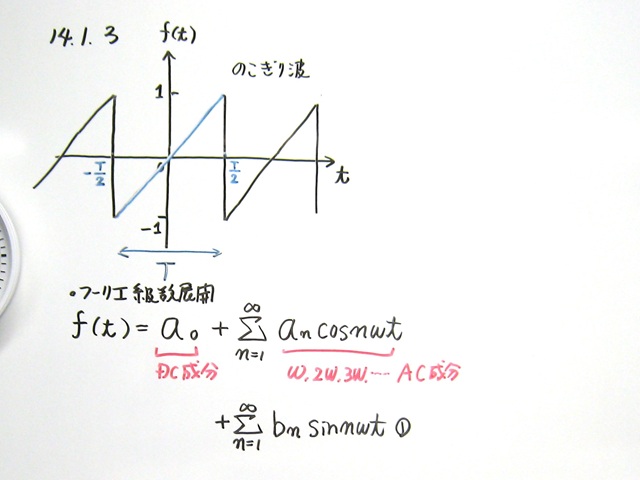 14.1.3
f(t)
のこぎり波
1
0
-T/2
T/2
t
-1
T
・フーリエ級数展開
f(t) = a₀ + ∑_{n=1}^{∞} aₙ cosnωt
DC成分
ω.2ω.3ω.… AC成分
+ ∑_{n=1}^{∞} bₙ sinnωt ①